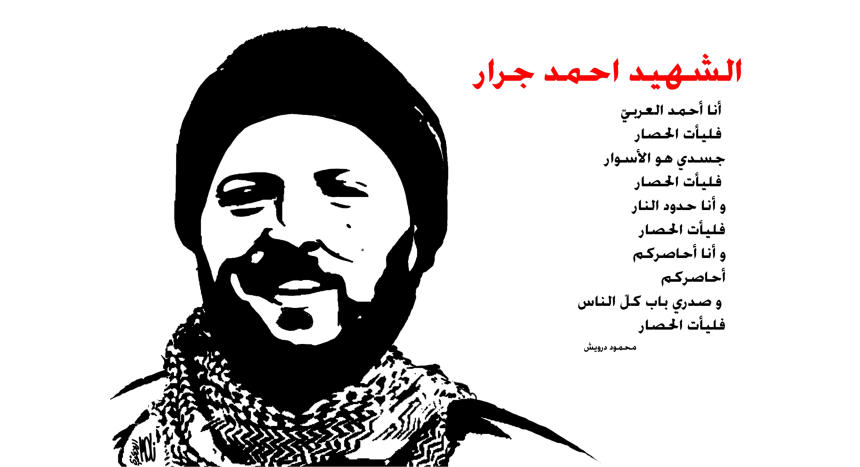 الشهيد احمد جرار
أنا أحمد العربيّ
فليأت الحصار
جسدي هو الأسوار
فليأت الحصار
و أنا حدود النار
فليأت الحصار
و أنا أحاصركم
أحاصركم
و صدري باب كلّ الناس
فليأت الحصار
محمود درويش